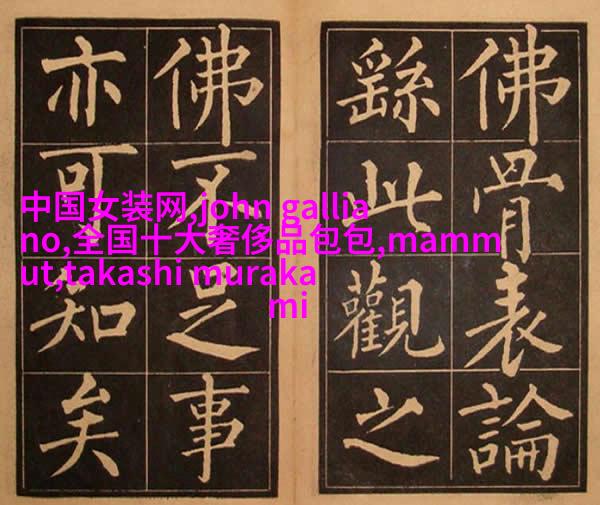 佛骨表論
繇此觀之
佛不足事
亦可知矣
中国女装网,john gallia
no,全国十大奢侈品包包,mamm
ut,takashi muraka
mi